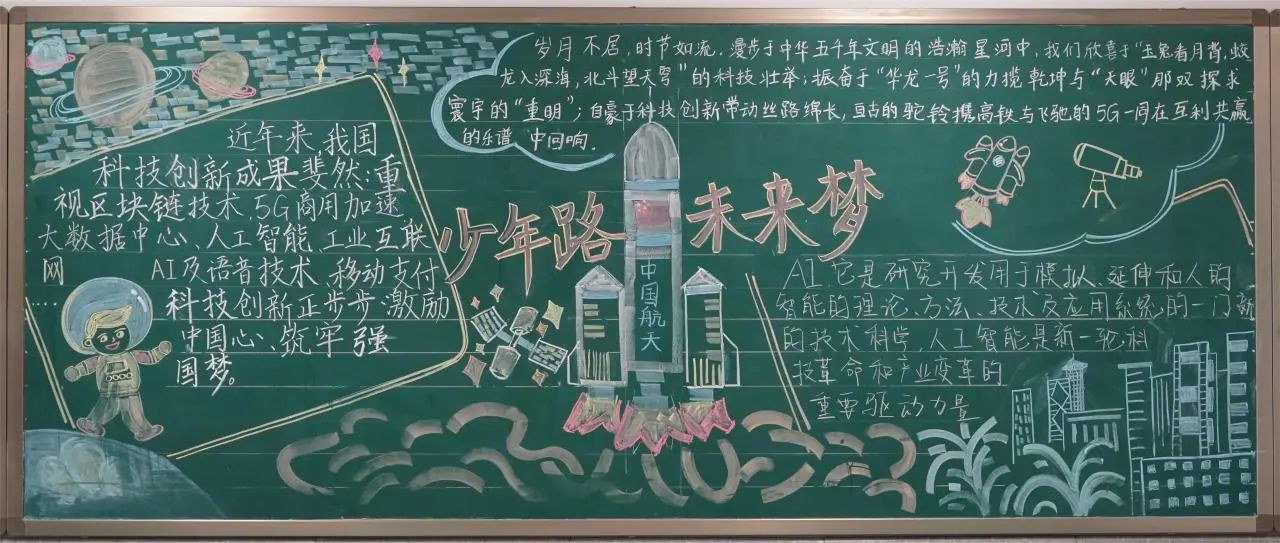 岁月不居，时节如流．漫步于中华五千年文明的浩瀚星河中，我们欣喜于“玉兔着月背，蛟
龙入深海，北斗望天穹”的科技壮举；振奋于“华龙一号”的力揽乾坤与“天眼”那双探求
寰宇的“重明”；自豪于科技创新带动丝路绵长，亘古的驼铃携高铁与飞驰的5G一同在互利共赢
的乐谱中回响．
近年来，我国
科技创新成果斐然：重
视区块链技术，5G商用加速，
大数据中心、人工智能、工业互联
网 AI及语音技术、移动支付
…… 科技创新正步步激励
中国心、筑牢强
国梦。
少年路 未来梦
中国航天
AI，它是研究开发用于模拟、延伸和人的
智能的理论、方法、技术及应用系统的一门新
的技术科学，人工智能是新一轮科
技革命和产业变革的
重要驱动力量